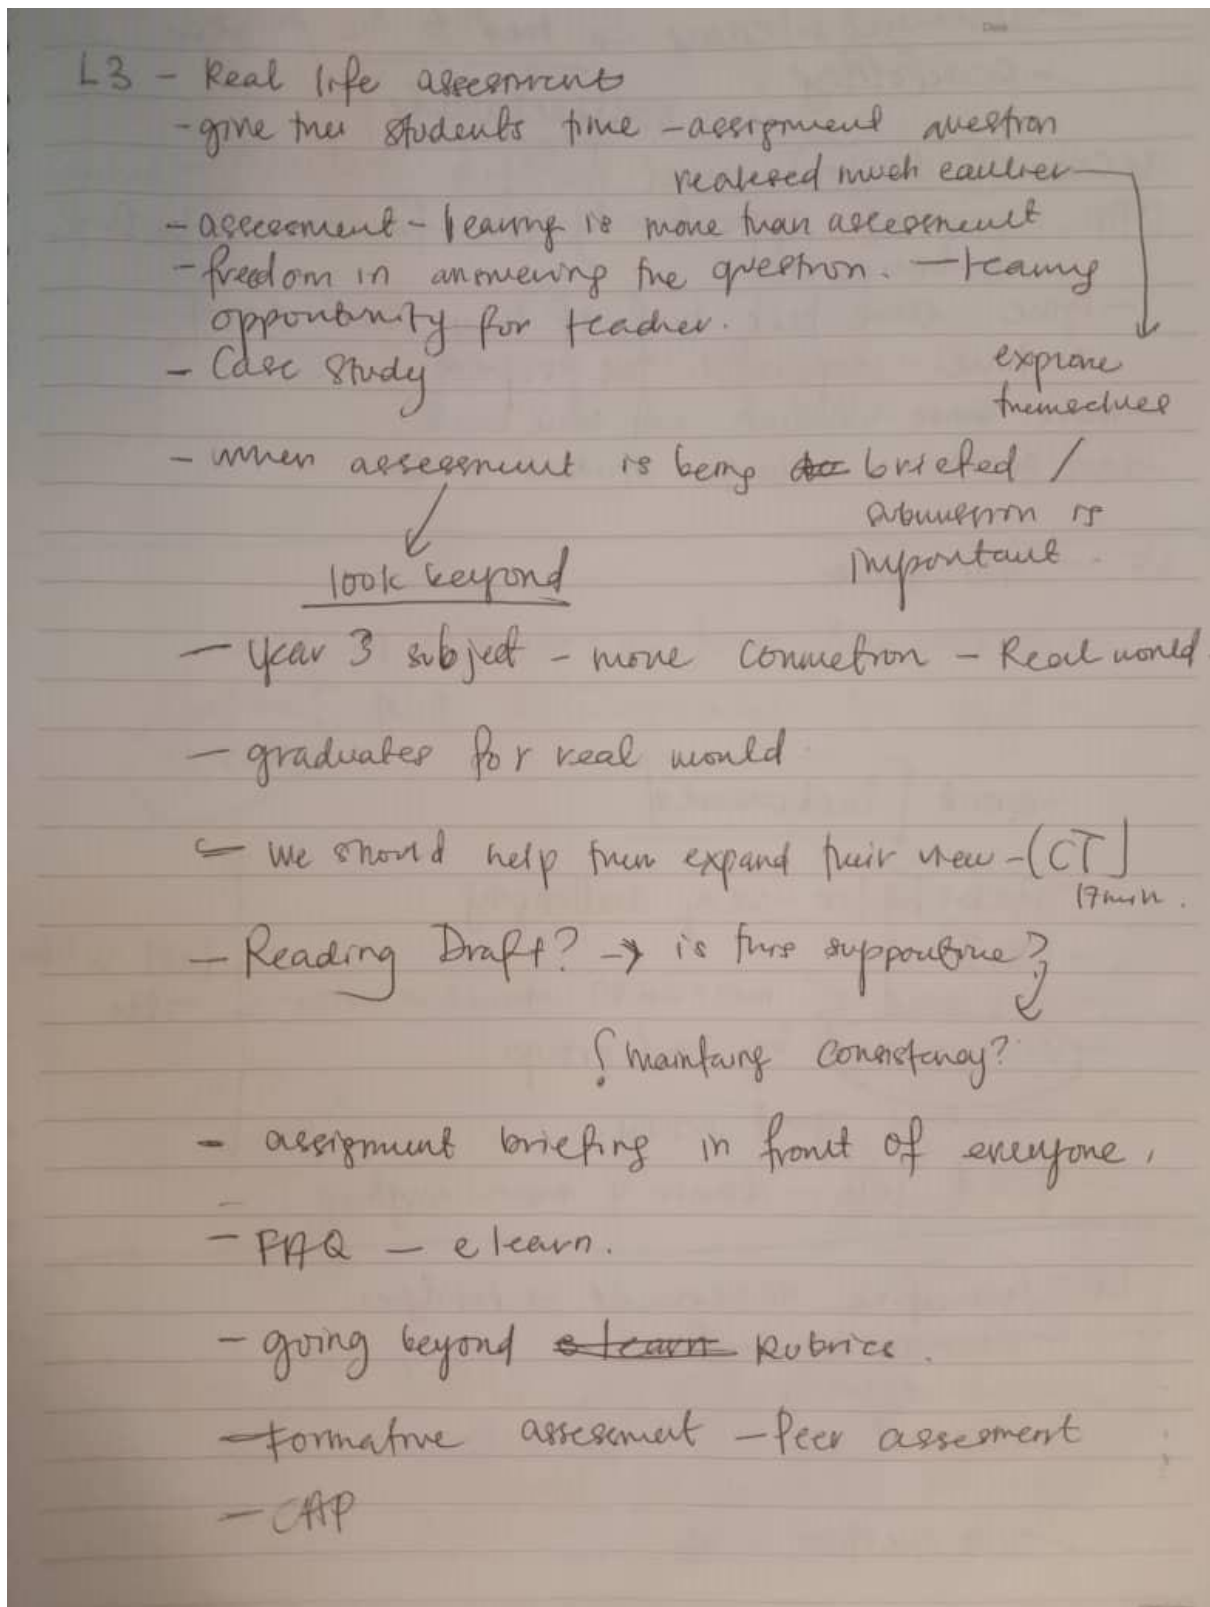 L3 - Real life assessment
- give the students time - assignment question
realesed much earlier
- assessment - learing is more than assessment
- freedom in answering the question. - learing
opportunity for teacher.
- Case study
explore
themselves
- when assessment is being briefed /
submission is
important.
look beyond
- year 3 subject - more connection - Real world
- graduates for real world
- We should help them expand their view - (CT)
17min.
- Reading Draft? → is this supportive?
maintaing consistency?
- assignment briefing in front of everyone,
- FAQ - elearn.
- going beyond elearn Rubrics.
- formative assessment - Peer assesment
- CAP